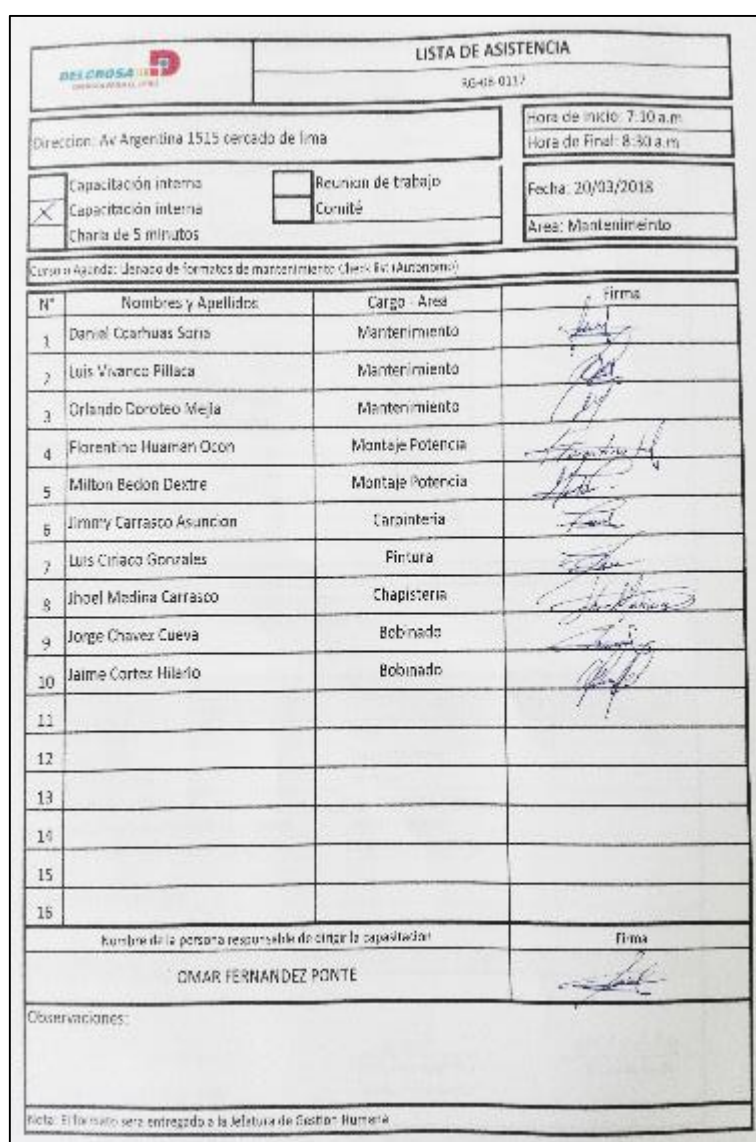 DELCROSA
LISTA DE ASISTENCIA
Direccion: Av Argentina 1515 cercado de lima
Hora de inicio: 7:10 a.m
Hora de Final: 8:30 a.m
Capacitación interna
Reunion de trabajo
Capacitación interna
Comité
Charla de 5 minutos
Fecha: 20/03/2018
Area: Mantenimeinto
Curso o Agenda: Llenado de formatos de mantenimiento Check list (Autonomo)
N° Nombres y Apellidos Cargo - Area Firma
1 Daniel Ccarhuas Soria Mantenimiento
2 Luis Vivanco Pillaca Mantenimiento
3 Orlando Doroteo Mejia Mantenimiento
4 Florentino Huaman Ocon Montaje Potencia
5 Milton Bedon Dextre Montaje Potencia
6 Jimmy Carrasco Asuncion Carpinteria
7 Luis Ciriaco Gonzales Pintura
8 Jhoel Medina Carrasco Chapisteria
9 Jorge Chavez Cueva Bobinado
10 Jaime Cortez Hilario Bobinado
11
12
13
14
15
16
Nombre de la persona responsable de dirigir la capasitacion Firma
OMAR FERNANDEZ PONTE
Observaciones:
Nota: El formato sera entregado a la Jefatura de Gestion Humana